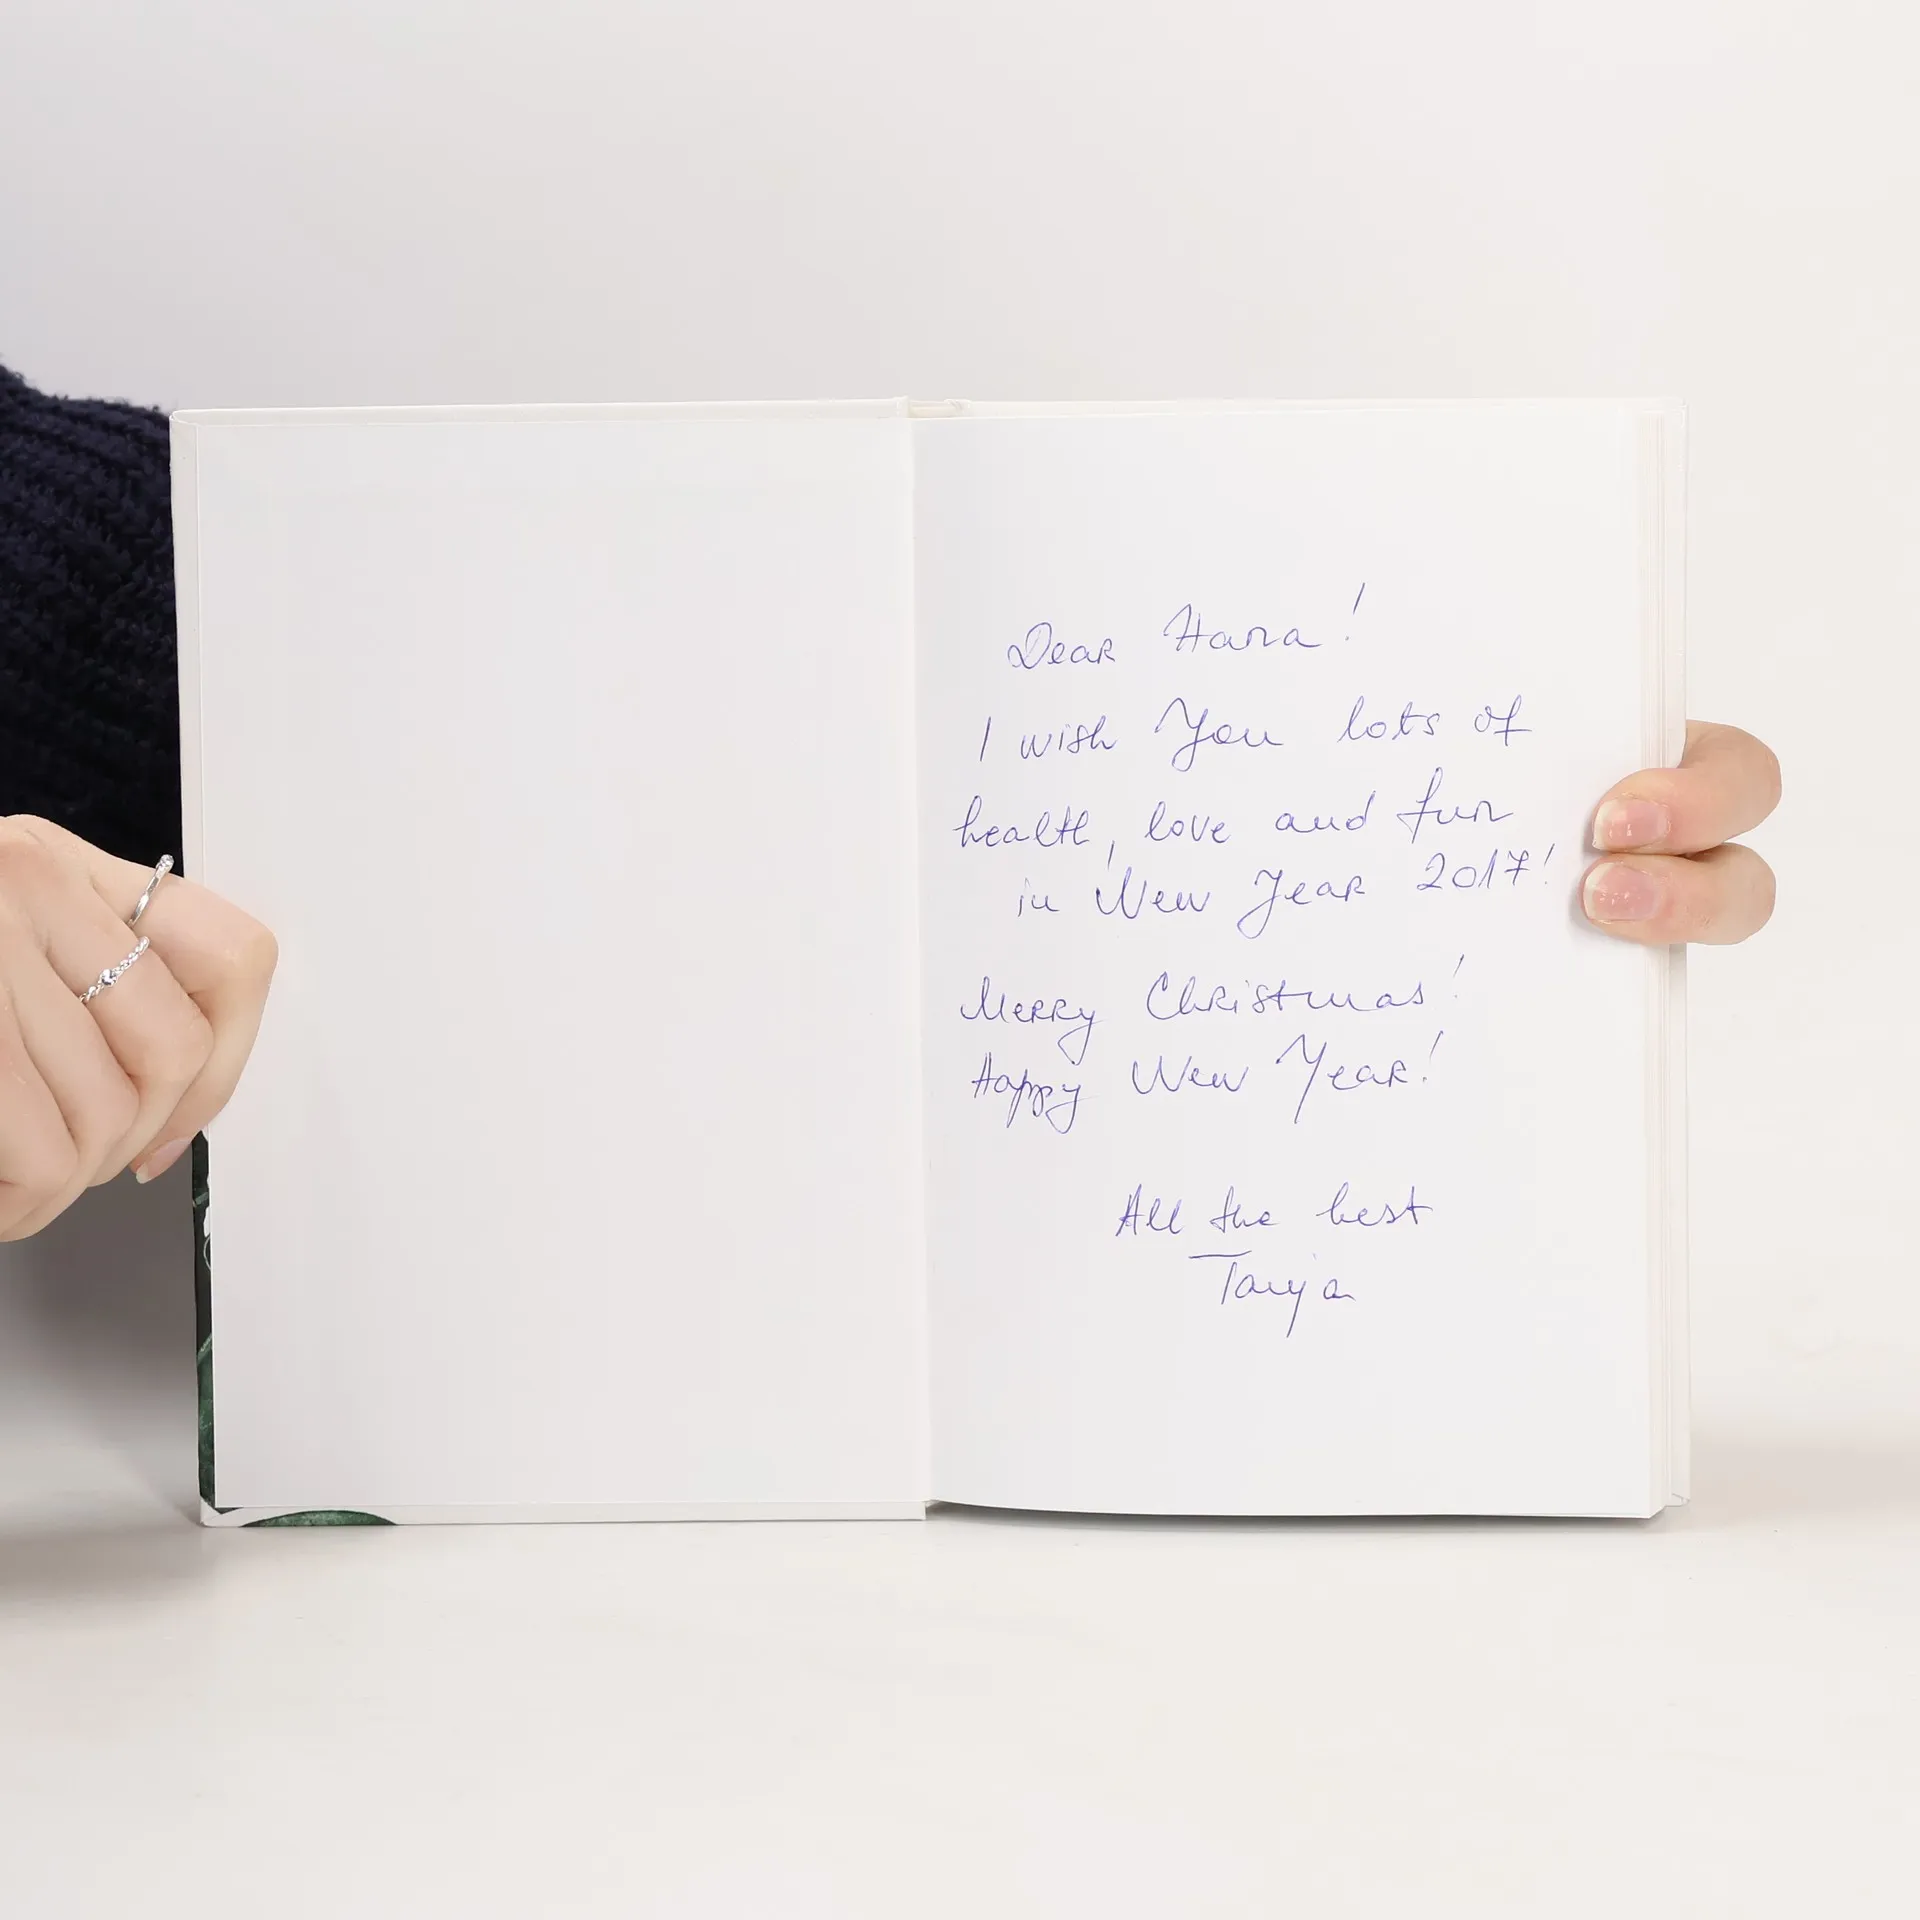 Dear Hana!
I wish You lots of
health, love and fun
in New Year 2017!
Merry Christmas!
Happy New Year!
All the best
Tanja